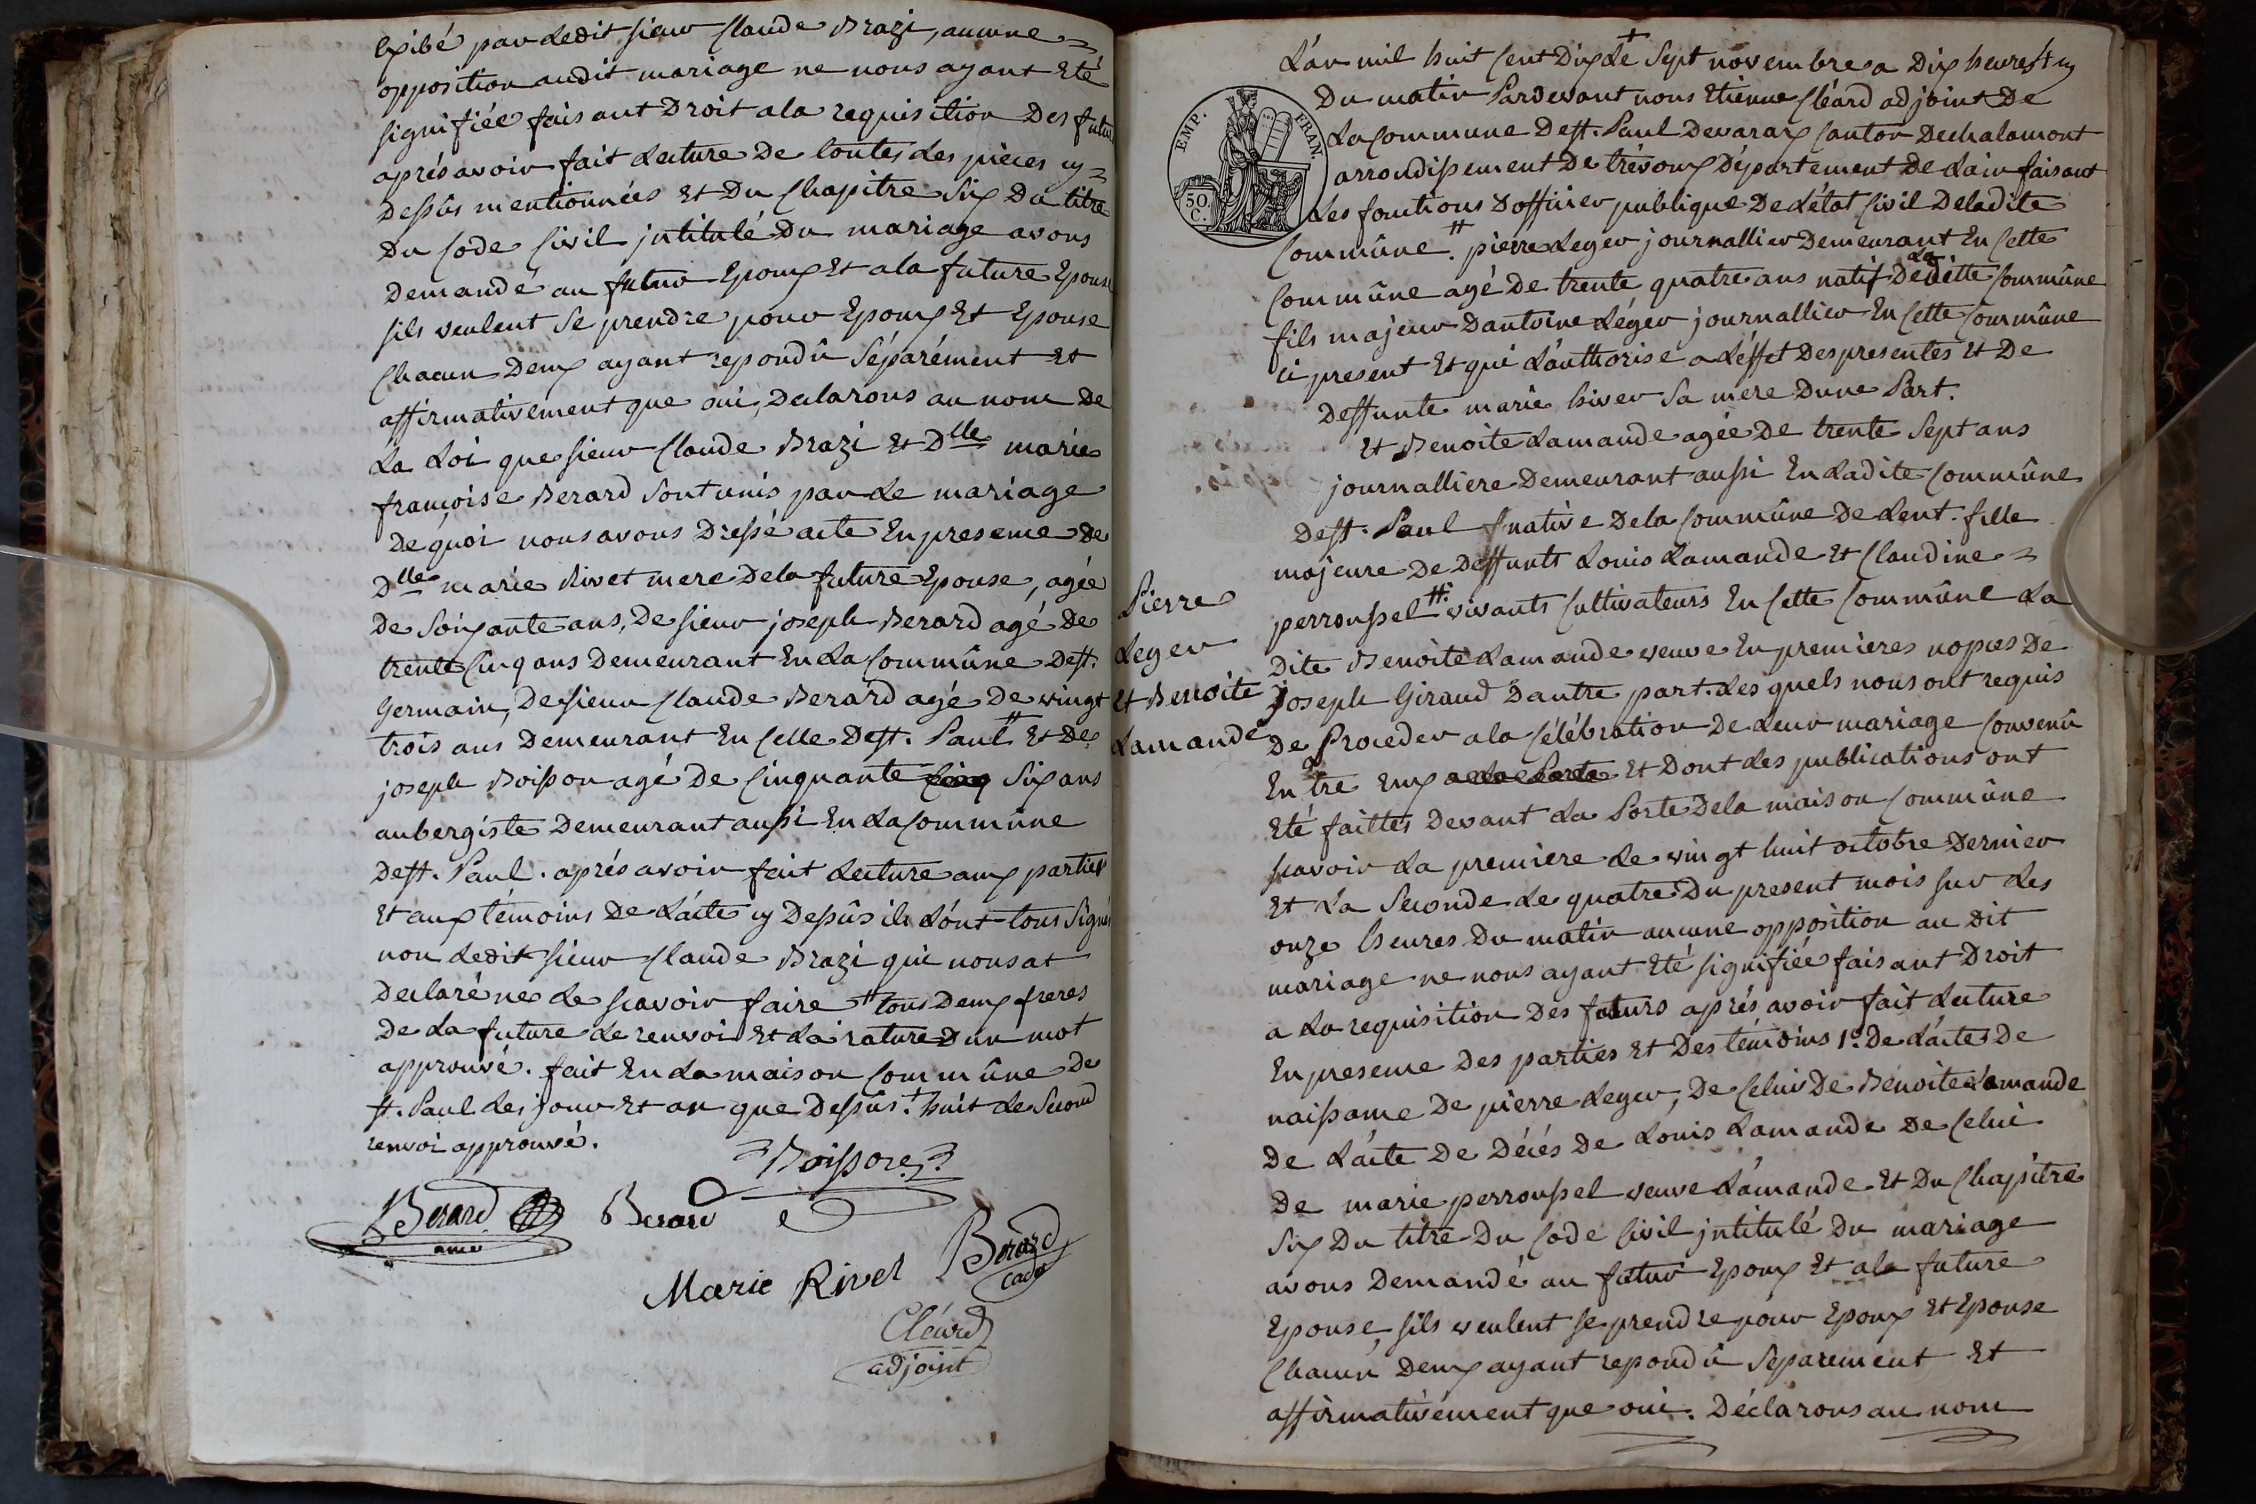 Exibé par ledit sieur Claude Brazi, aucune =
opposition audit mariage ne nous ayant Eté
signifiée faisant Droit a la requisition Des futu
aprés avoir fait Lecture De toutes Les pieces cy =
Dessûs mentionnées Et Du Chapitre Six Du titre
Du Code Civil jntitulé Du mariage avons
Demandé au futur Epoux Et a la future Epouse
sils veulent Se prendre pour Epoux Et Epouse
Chacun Deux ayant repondû Séparément Et
affirmativement que oui, Declarons au nom De
La Loi que sieur Claude Brazi Et Dlle marie
françoise Berard Sont unis par Le mariage
De quoi nous avons Dressé acte En presence De
Dlle marie Rivet mere De la future Epouse, agée
De Soixante ans, De sieur joseph Berard agé De
trente Cinq ans Demeurant En La Commûne De st.
Germain, De sieur Claude Berard agé De vingt
trois ans Demeurant En Celle De st. Paul # Et De
joseph Boisson agé De Cinquante Cinq Six ans
aubergiste Demeurant aussi En La Commûne
De st. Paul. aprés avoir fait Lecture aux parties
Et aux témoins De Lácte cy Dessûs ils Lónt tous Signé
non Ledit sieur Claude Brazi qui nous at
Declaré ne Le scavoir faire # tous Deux freres
De La future Le renvoi Et La rature Dun mot
approuvé. fait En La maison Commûne De
st. Paul Les jour Et an que Dessûs. + huit Le Second
renvoi approuvé.
Boisson
Berard Berard
ainé
Marie Rivet Berard
cadet
Cléard
adjoint
Pierre
Leger
Et Benoite
Lamande
Lán mil huit Cent Dix Le + Sept novembre a Dix heures
Du matin Pardevant nous Etienne Cléard adjoint De
EMP. FRAN.
50.
C.
La Commune De st. Paul De varax Canton De chalamont
arrondissement De trévoux Département De Lain faisant
Les fonctions Dofficier publique De Létat Civil De ladite
Commûne. # pierre Leger journallier Demeurant En Cette
Commûne agé De trente quatre ans natif De La ditte Commûne
fils majeur Dantoine Léger journallier En Cette Commûne
ci present Et qui Lauthorise a Léffet Des presentes Et De
Deffunte marie hiver Sa mere Dune Part.
Et Benoite Lamande agée De trente Sept ans
journalliere Demeurant aussi En Ladite Commûne
De st. Paul native De la Commûne De Lent. fille
majeure De Deffunts Louis Lamande Et Claudine =
perroussel #. vivants Cultivateurs En Cette Commûne La
Dite Benoite Lamande veuve En premieres nopces De
joseph Giraud Dautre part. Les quels nous ont requis
De Proceder a la Célébration De Leur mariage Convenû
Entre Eux Et Dont Les publications ont
Eté faittes Devant La Porte De la maison Commûne
scavoir La premiere Le vingt huit octobre Dernier
Et La Seconde Le quatre Du present mois sur Les
onze heures Du matin aucune opposition au Dit
mariage ne nous ayant Eté signifiée faisant Droit
a La requisition Des futurs aprés avoir fait Lecture
En presence Des parties Et Des témoins 1o. De Lácte De
naissance De pierre Leger, De Celui De Benoite Lamande
De Lácte De Décés De Louis Lamande De Celui
De marie perroussel veuve Lámande Et Du Chapitre
Six Du titre Du Code Civil jntitulé Du mariage
avons Demandé au futur Epoux Et a la future
Epouse sils veulent se prendre pour Epoux Et Epouse
Chacun Deux ayant repondû Separement Et
affirmativement que oui. Déclarons au nom